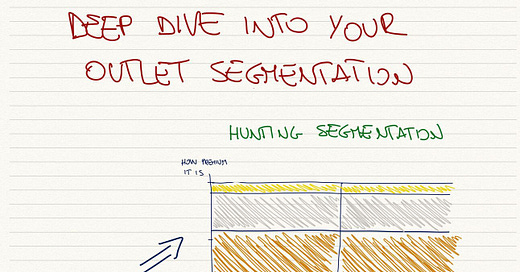 DEEP DIVE INTO YOUR
OUTLET SEGMENTATION
HUNTING SEGMENTATION
HOW PREMIUM
IT IS